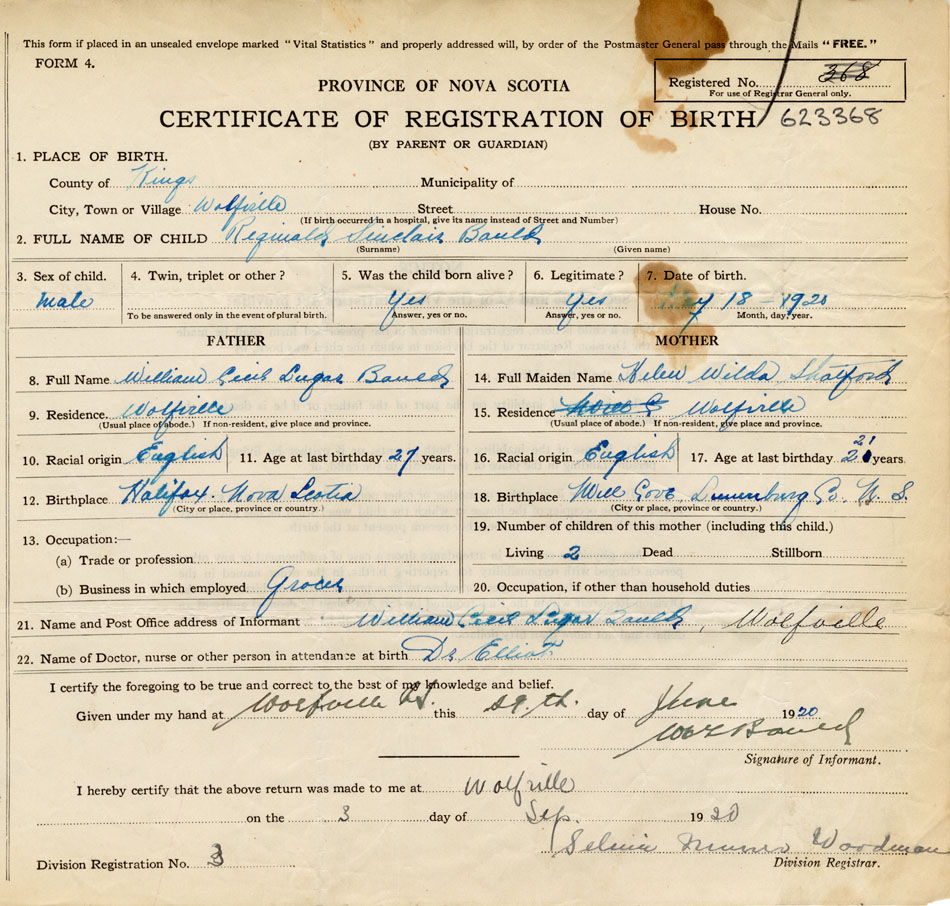 This form if placed in an unsealed envelope marked "Vital Statistics" and properly addressed will, by order of the Postmaster General pass through the Mails "FREE."
FORM 4.
Registered No. 368
For use of Registrar General only.
PROVINCE OF NOVA SCOTIA
CERTIFICATE OF REGISTRATION OF BIRTH 623368
(BY PARENT OR GUARDIAN)
1. PLACE OF BIRTH.
County of Kings Municipality of
City, Town or Village Wolfville Street House No.
(If birth occurred in a hospital, give its name instead of Street and Number)
2. FULL NAME OF CHILD Reginald Sinclair Bauld
(Surname) (Given name)
3. Sex of child. 4. Twin, triplet or other? 5. Was the child born alive? 6. Legitimate? 7. Date of birth.
Male Yes Yes 18 - 1920
To be answered only in the event of plural birth. Answer, yes or no. Answer, yes or no. Month, day, year.
FATHER MOTHER
8. Full Name William Cecil Bauld 14. Full Maiden Name Helen Wilda Shatford
9. Residence. Wolfville 15. Residence Wolfville
(Usual place of abode.) If non-resident, give place and province. (Usual place of abode.) If non-resident, give place and province.
10. Racial origin English 11. Age at last birthday 27 years. 16. Racial origin English 17. Age at last birthday 21 years.
12. Birthplace Halifax. Nova Scotia 18. Birthplace Mill Cove, Lunenburg Co. N. S.
(City or place, province or country.) (City or place, province or country.)
13. Occupation:— 19. Number of children of this mother (including this child.)
(a) Trade or profession Living 2 Dead Stillborn
(b) Business in which employed Grocer 20. Occupation, if other than household duties
21. Name and Post Office address of Informant William Cecil Bauld, Wolfville
22. Name of Doctor, nurse or other person in attendance at birth Dr Elliot
I certify the foregoing to be true and correct to the best of my knowledge and belief.
Given under my hand at Wolfville this 29th. day of June 1920
Bauld
Signature of Informant.
I hereby certify that the above return was made to me at Wolfville
on the 3 day of Sep. 1920
Woodman
Division Registration No. 3 Division Registrar.